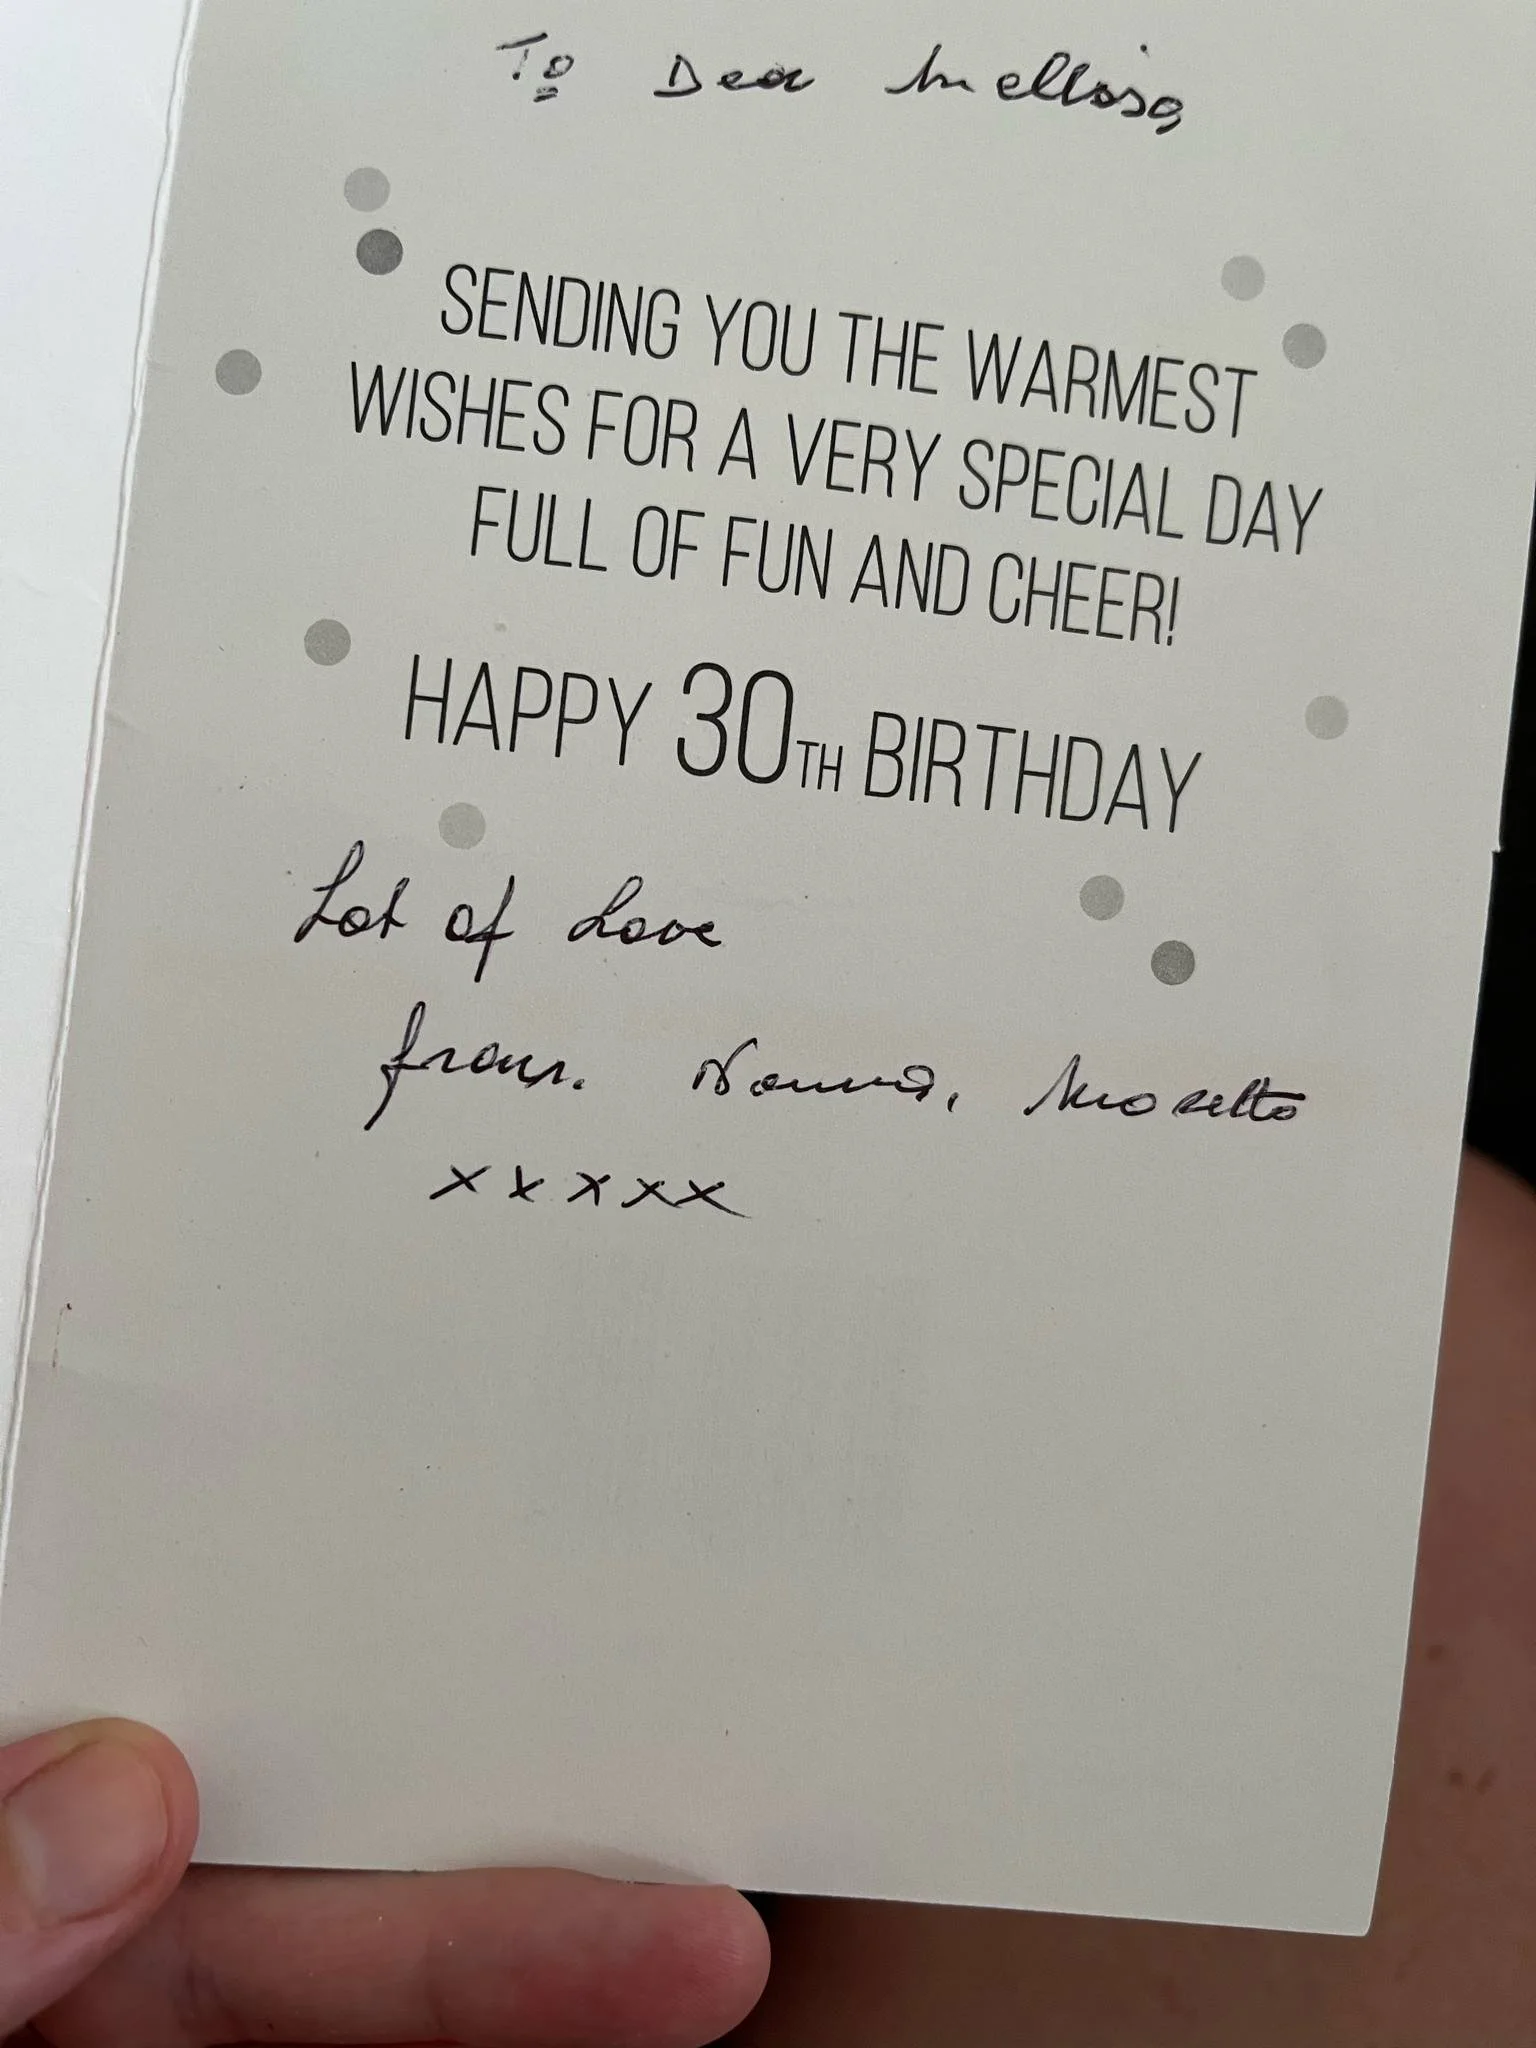 To Dear Mellisa,
SENDING YOU THE WARMEST
WISHES FOR A VERY SPECIAL DAY
FULL OF FUN AND CHEER!
HAPPY 30TH BIRTHDAY
Lot of Love
from. Nonna,
xxxxx